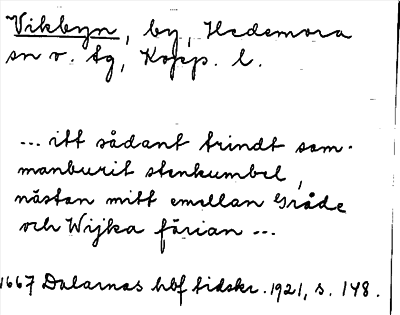 Vikbyn, by, Hedemora
sn v. tg, Kopp. l.
... itt sådant trindt sam-
manburit stenkumbel,
nästan mitt emellan Gråde
och Wijka färian ...
1667 Dalarnas hbf tidskr. 1921, s. 148.